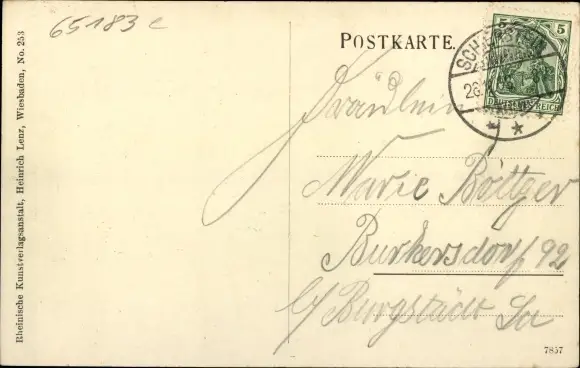 65183 c
POSTKARTE.
SCHIERSTEIN
5
DEUTSCHES REICH
Fräulein
Marie Bottger
Burkersdorf 92
b/ Burgstädt Sa
7857
Rheinische Kunstverlagsanstalt, Heinrich Lenz, Wiesbaden, No. 253